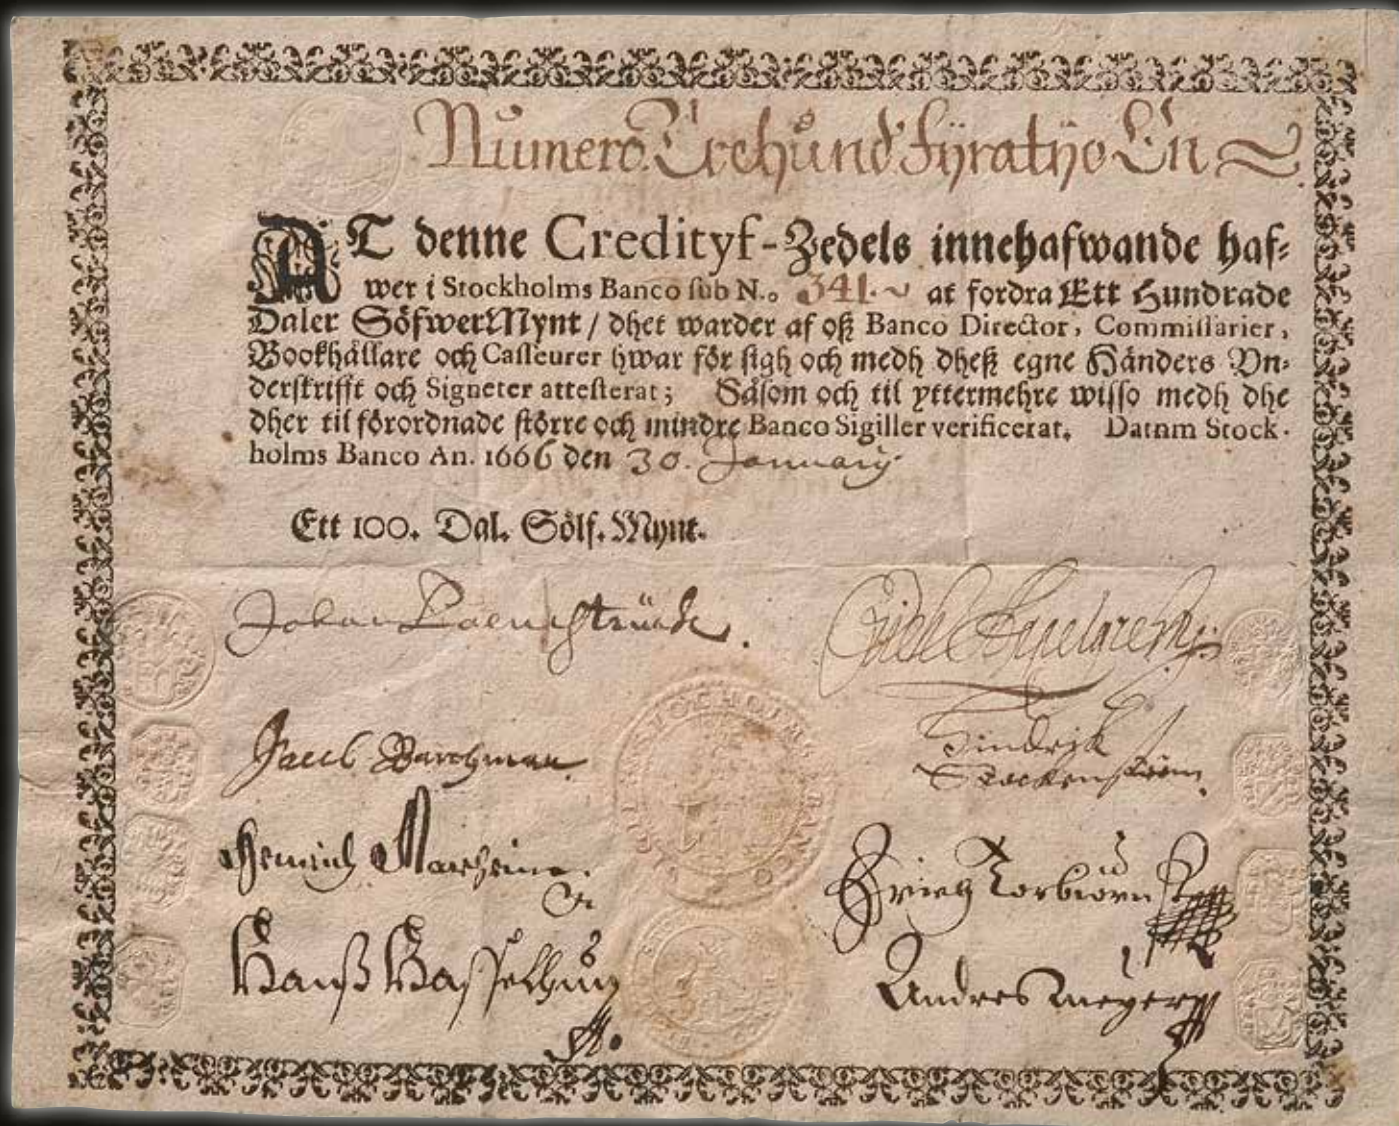 Numero Trehund Fÿratijo En
AT denne Credityf-Zedels innehafwande haf-
wer i Stockholms Banco sub N.o 341. at fordra Ett Hundrade
Daler SöfwerMynt / dhet warder af oß Banco Director, Commissarier,
Bookhållare och Casseurer hwar för sigh och medh dheß egne Händers Vn-
derskrifft och Signeter attesterat; Såsom och til yttermehre wisso medh dhe
dher til förordnade större och mindre Banco Sigiller verificerat. Datnm Stock-
holms Banco An. 1666 den 30. Januarij
Ett 100. Dal. Sölf. Mynt.
Johan Palmstruch.
Jacob Barchman
Hindrik
Stockenström
Henrich
Erich Torbiörn
Hanß
Andres Meyer
STOCHOLMS BANCO